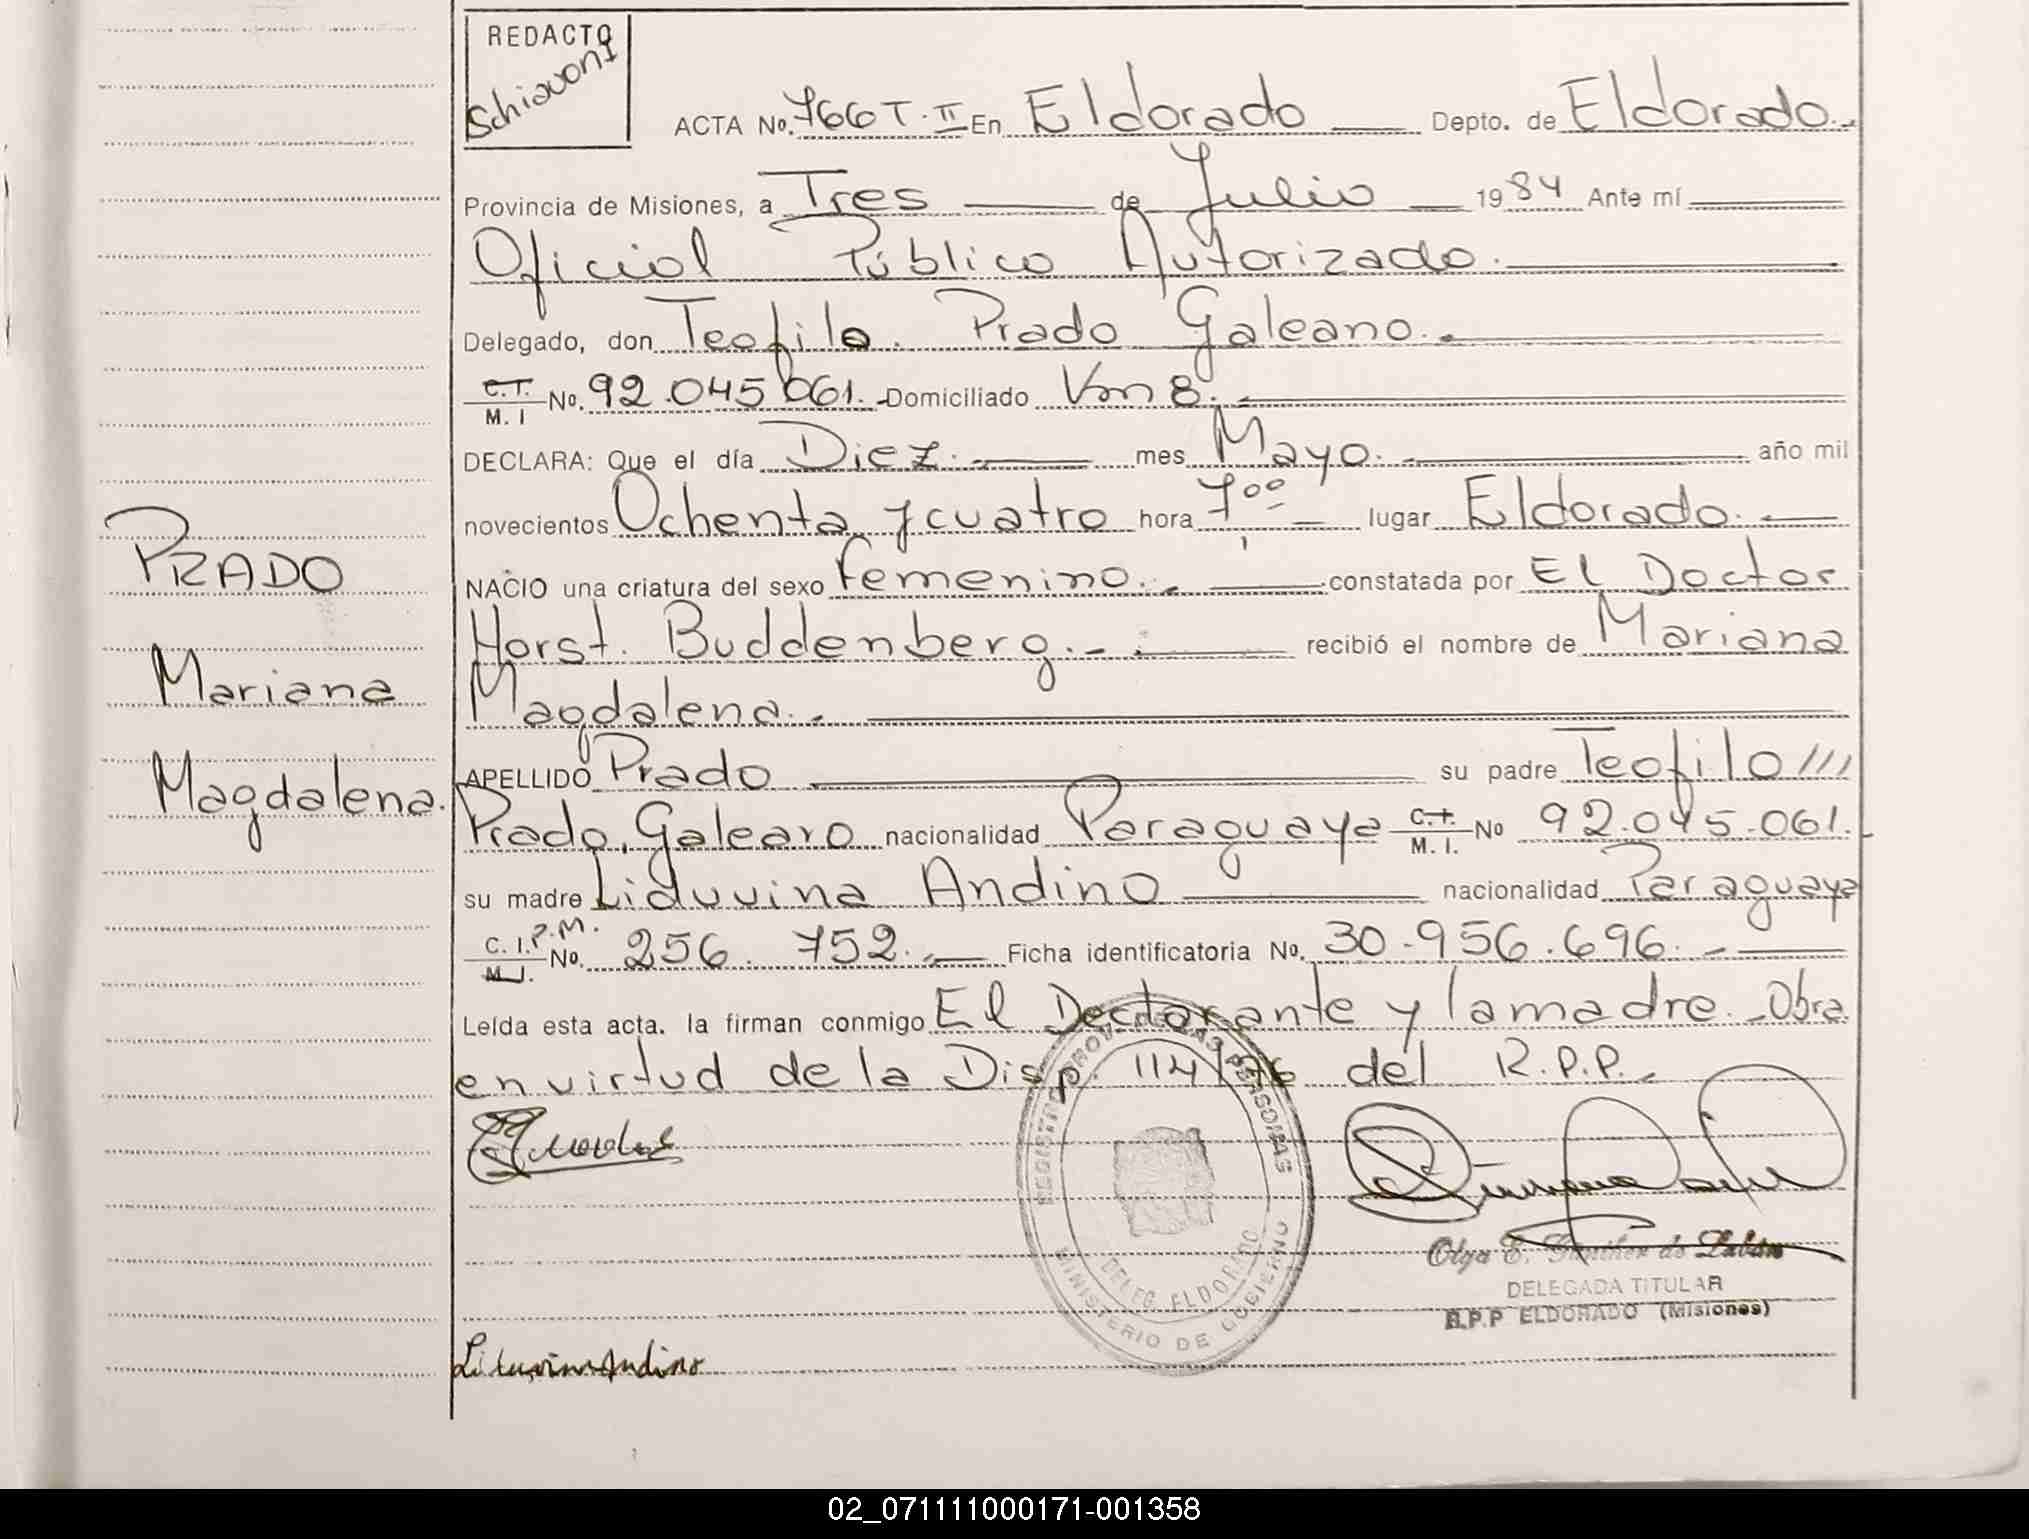 REDACTO
Schiavoni
ACTA No. 766 T. II En Eldorado Depto. de Eldorado.
Provincia de Misiones, a Tres de Julio 1984 Ante mí
Oficial Público Autorizado.
Delegado, don Teofilo. Prado Galeano.
C.T. M. I No. 92.045 061. Domiciliado Km 8.
DECLARA: Que el día Diez. mes Mayo. año mil
novecientos Ochenta y cuatro hora 7ºº lugar Eldorado.
NACIO una criatura del sexo femenino. constatada por El Doctor
Horst. Buddenberg. recibió el nombre de Mariana
Magdalena.
APELLIDO Prado su padre Teofilo ///
Prado, Galeano nacionalidad Paraguaya C.I. M. I. No 92.045.061.
su madre Liduvina Andino nacionalidad Paraguaya
C. I. P.M. M.I. No. 256. 752. Ficha identificatoria No. 30.956.696.
Leída esta acta. la firman conmigo El Declarante y la madre. Obra
en virtud de la Disp. 114/76 del R.P.P.
PRADO
Mariana
Magdalena.
REGISTRO PROV. DE LAS PERSONAS
DELEG. ELDORADO
MINISTERIO DE GOBIERNO
Olga E. de
DELEGADA TITULAR
R.P.P ELDORADO (Misiones)
Andino
02_071111000171-001358